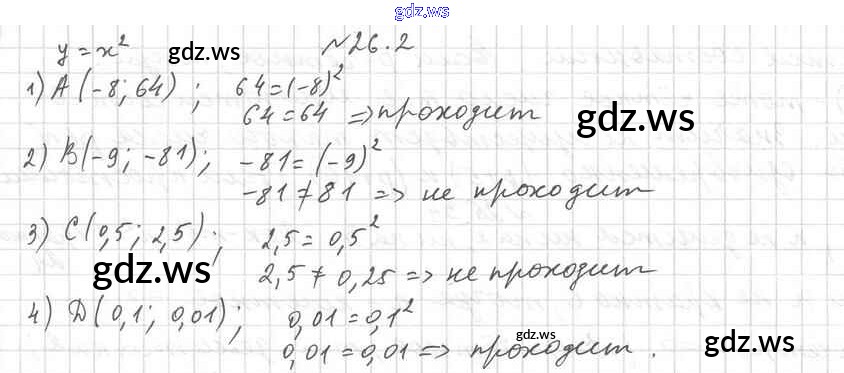 gdz.ws
y = x² gdz.ws №26.2
1) A(-8; 64) ; 64 = (-8)²
64 = 64 => проходит gdz.ws
2) B(-9; -81); -81 = (-9)²
-81 ≠ 81 => не проходит
3) C(0,5; 2,5); 2,5 = 0,5²
gdz.ws 2,5 ≠ 0,25 => не проходит
4) D(0,1; 0,01); 0,01 = 0,1²
0,01 = 0,01 => проходит. gdz.ws gdz.ws